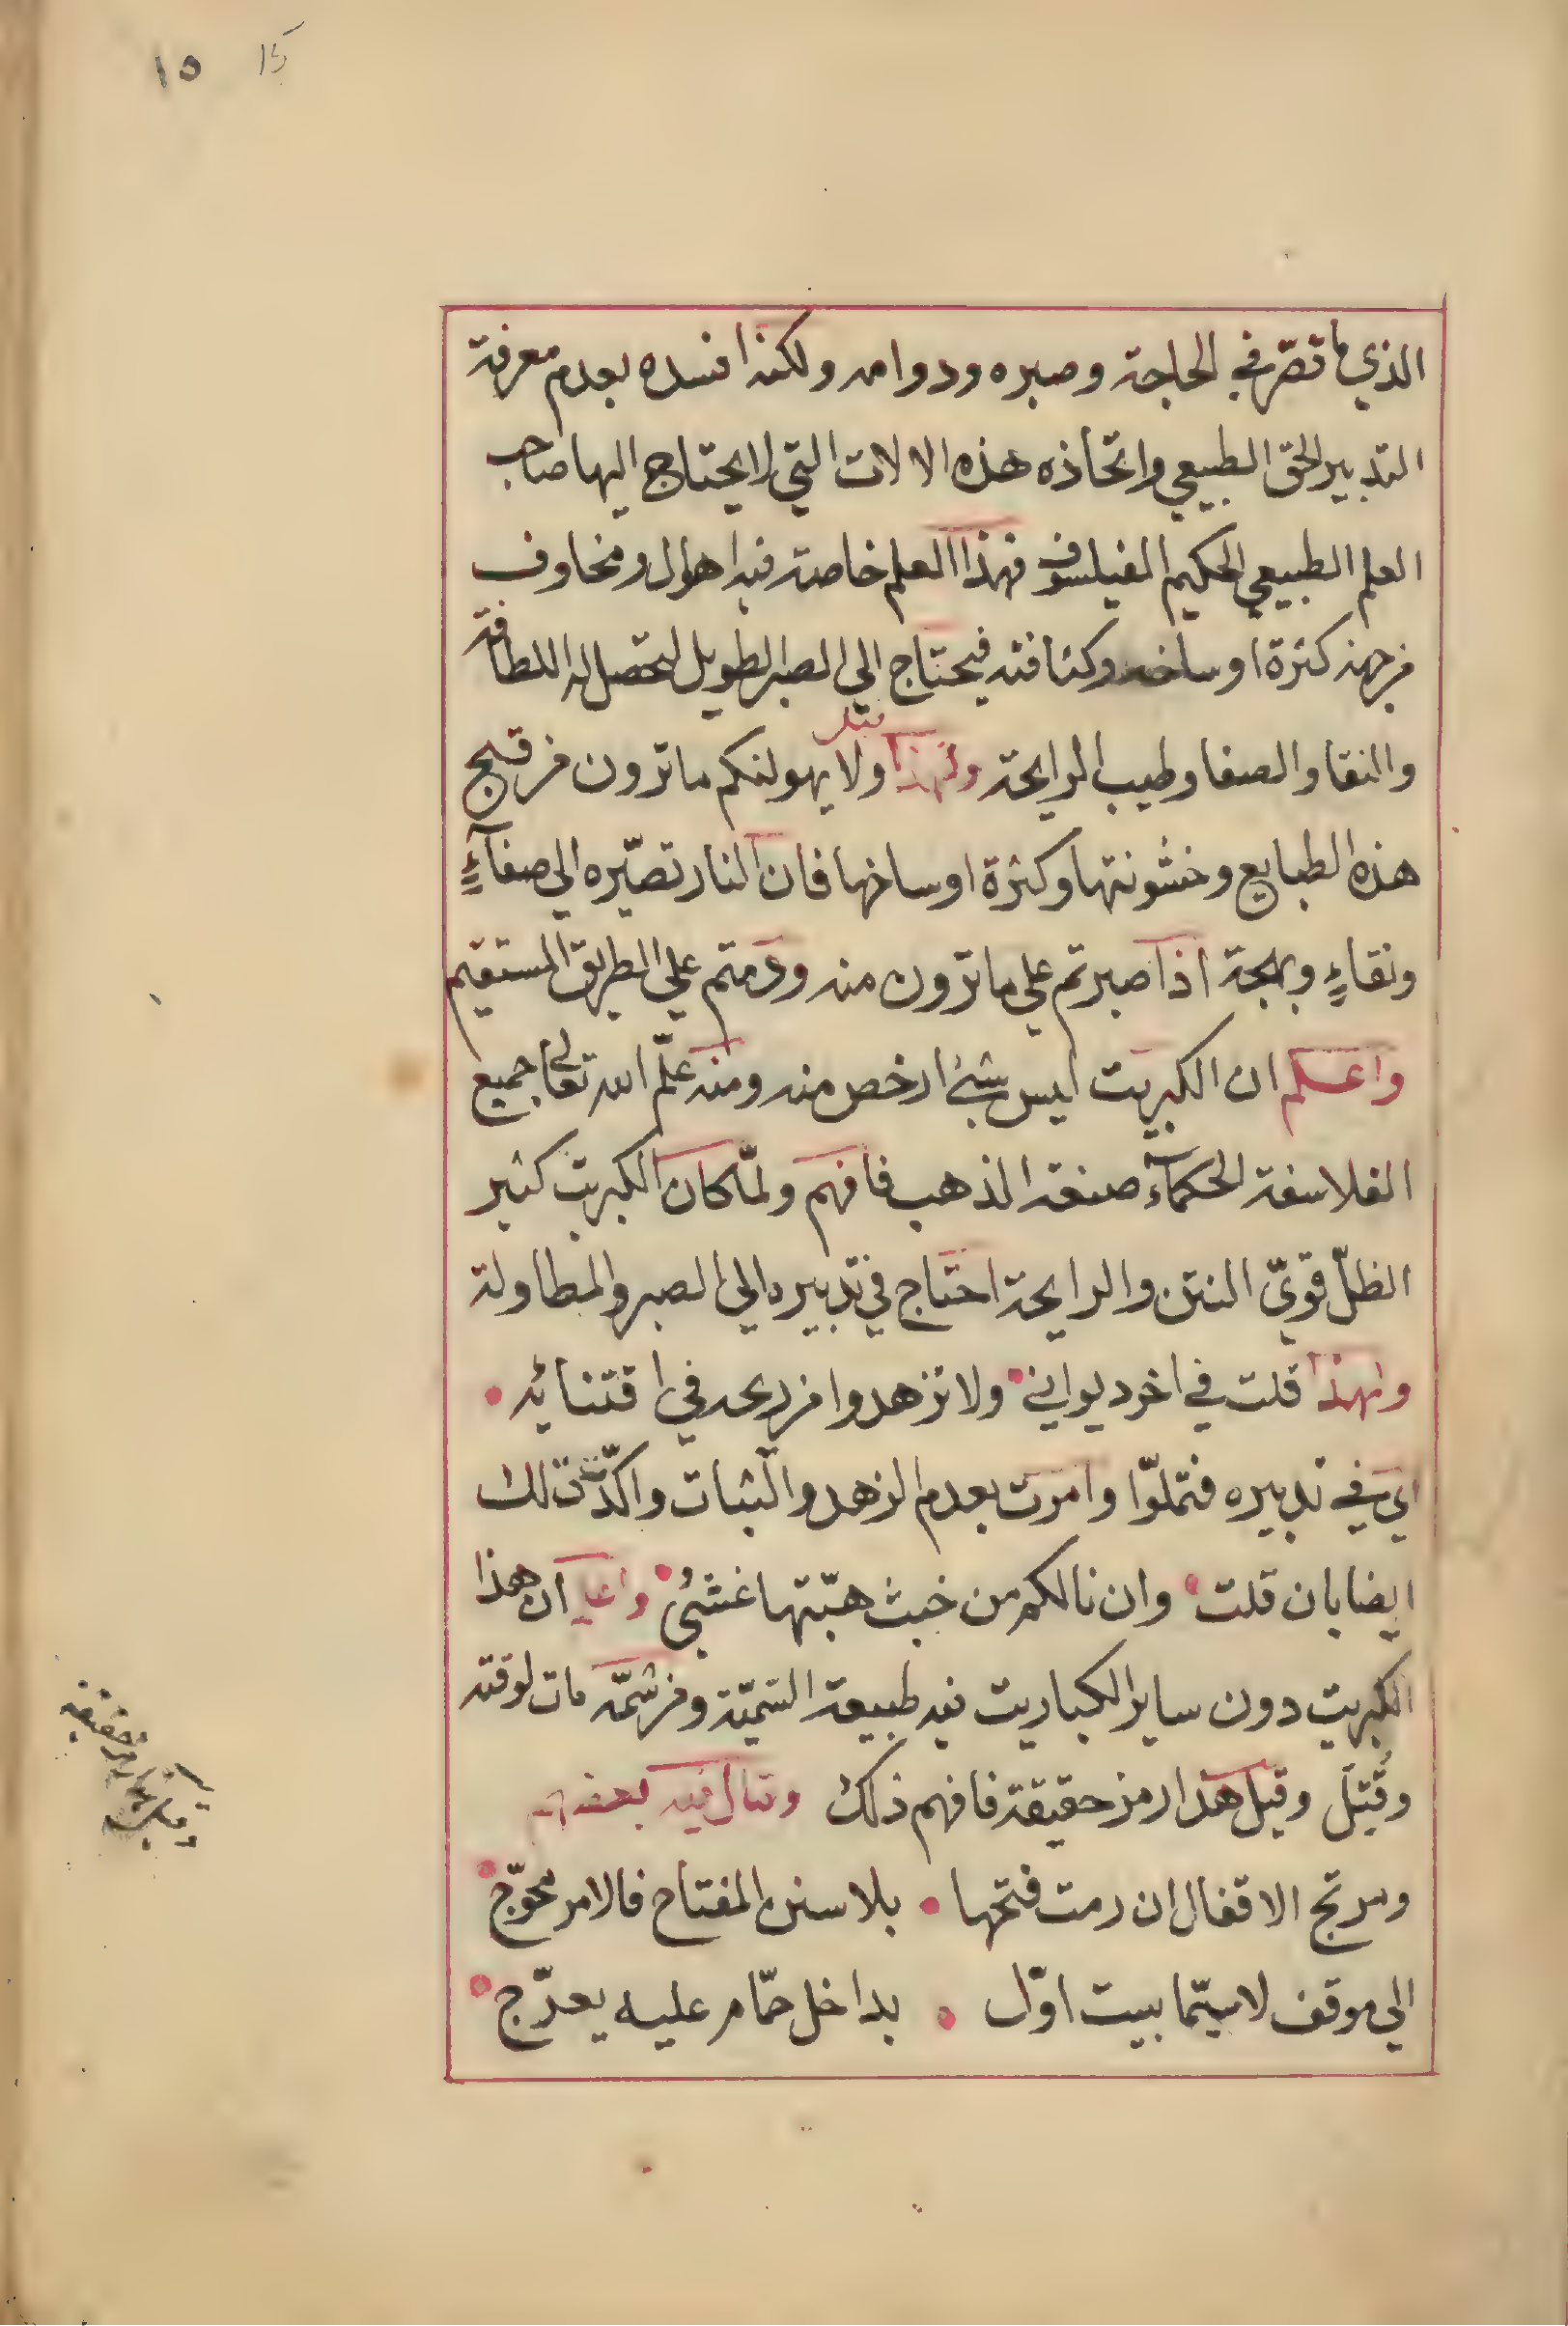 ١٥ 15
الذي ما قصّر في الحاجة وصبره ودوامه ولكنه افسده بعدم معرفة
التدبير الحق الطبيعي واتخاذه هذه الالات التي لا يحتاج اليها صاحب
العلم الطبيعي الحكيم الفيلسوف فهذا العلم خاصة فيه اهوال ومخاوف
من جهة كثرة اوساخه وكثافته فيحتاج الي الصبر الطويل لتحصل له اللطافة
والنقا والصفا وطيب الرايحة ولهذا قيل ولا يهولنكم ما ترون من قبيح
هذه الطبايع وخشونتها وكثرة اوساخها فان النار تصيّره الي صفآءٍ
ونقاءٍ وبهجة اذا صبرتم علي ما ترون منه ودمتم علي الطريق المستقيم
واعلم ان الكبريت ليس شئ ارخص منه ومنه علّم الله تعالي جميع
الفلاسفة الحكمآء صنعة الذهب فافهم ولمّا كان الكبريت كثير
الظلّ قويّ النتن والرايحة احتاج في تدبيره الي الصبر والمطاولة
ولهذا قلت في اخر ديواني ولا تزهدوا من ريحه في اقتنائه
اي في تدبيره فتملّوا وامرت بعدم الزهد والثبات واكّدت ذلك
ايضا بان قلت وان نالكم من خبث هبّتها غشيُ واعلم ان هذا
الكبريت دون ساير الكباريت فيه طبيعة السّميّة ومن شمّه مات لوقته
وقُتِلَ وقيل هذا رمز حقيقة فافهم ذلك وقال فيه بعضهم
ومرتج الاقفال ان رمت فتحها بلا سنن المفتاح فالامر محوّج
الي موقف لا سيّما بيت اوّل بداخل حمّام عليه يعرّج